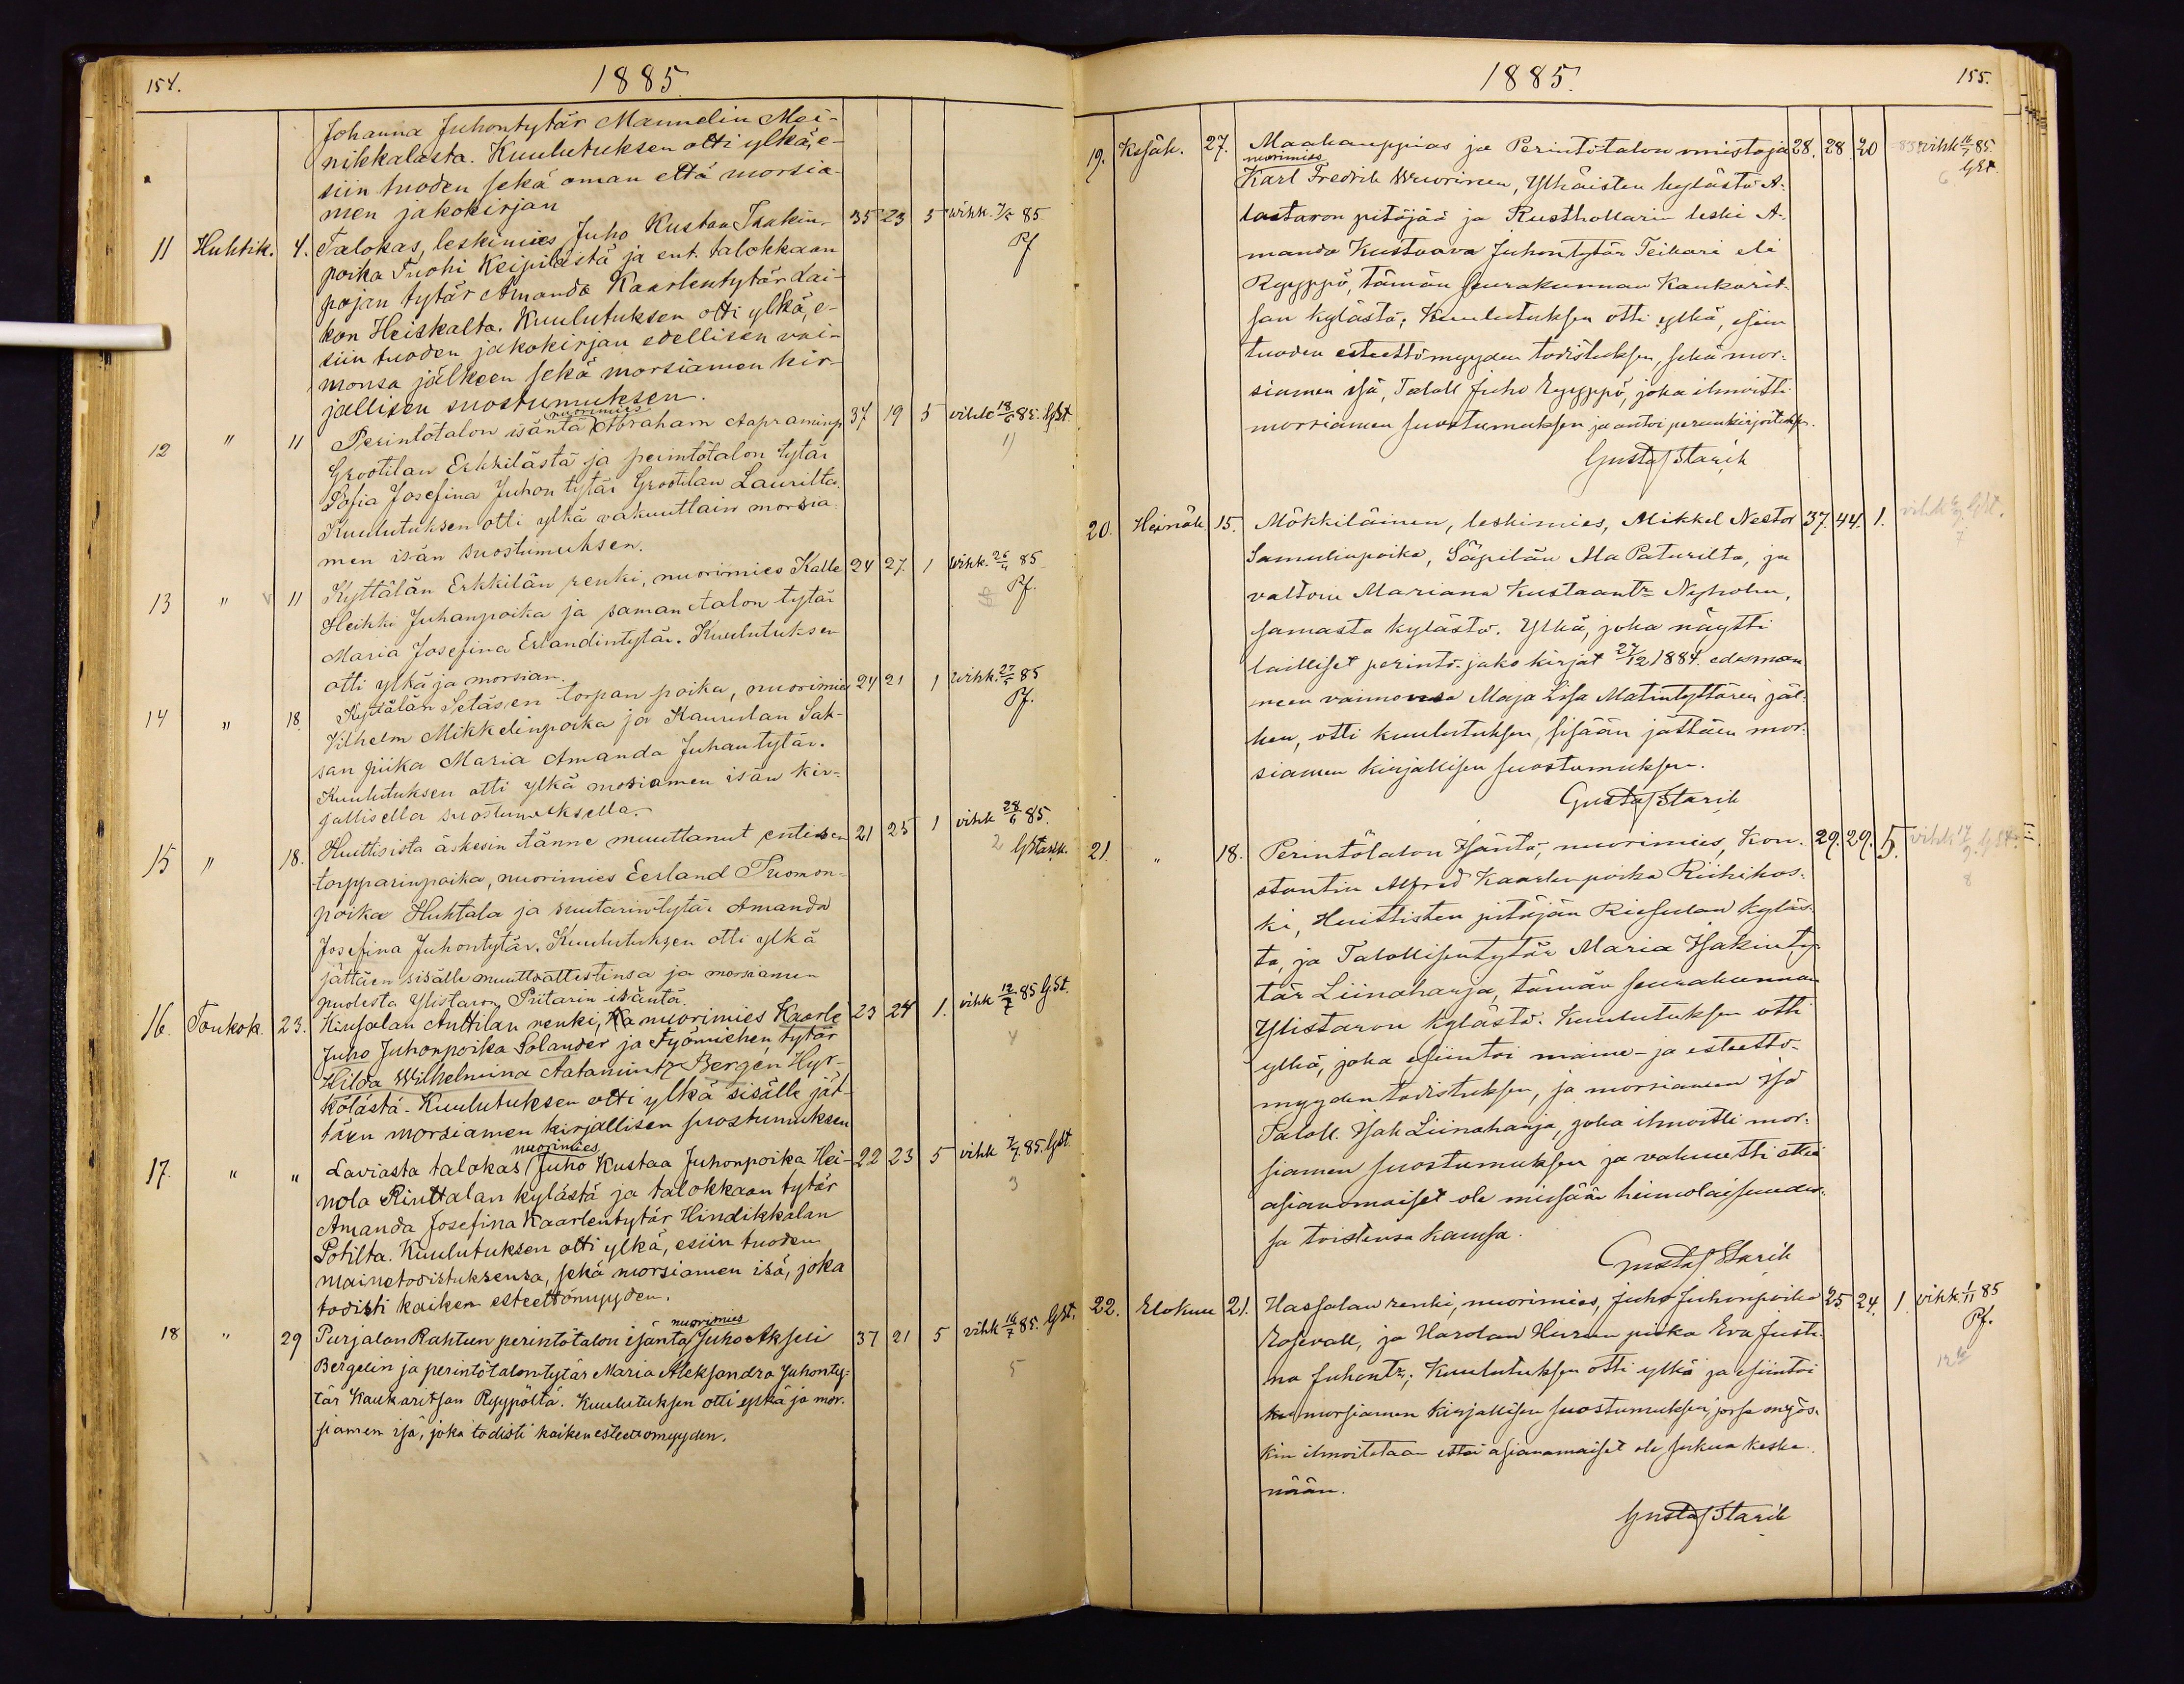 154.
1885.
Johanna Juhontytär Mannelin Mei-
nikkalasta. Kuulutuksen otti ylkä, e-
siin tuoden sekä oman että morsia-
men jakokirjan
11 Huhtik. 4. Talokas, leskimies Juho Kustaa Isakin- 35 23 5 vihk. 85
poika Tuohi Keipilästä ja ent. talokkaan Pf
pojan tytär Amanda Kaarlentytär Lai-
kon Heiskalta. Kuulutuksen otti ylkä, e-
siin tuoden jakokirjan edellisen vai-
monsa jälkeen sekä morsiamen kir-
jallisen suostumuksen.
nuorimies
12 " 11 Perintötalon isäntä Abraham Aapraminp. 37 19 5 vihk 18/6 85. GSt.
Grootilan Erkkilästä ja perintötalon tytär 1)
Sofia Josefina Juhon tytär Grootilan Laurilta.
Kuulutuksen otti ylkä vakuuttain morsia-
men isän suostumuksen.
13 " 11 Kyttälän Erkkilän renki, nuorimies Kalle 24 27. 1 vihk. 26/4 85
Heikki Juhanpoika ja saman talon tytär Pf.
Maria Josefina Erlandintytär. Kuulutuksen
otti ylkä ja morsian.
14 " 18. Kyttälän Setäsen torpan poika, nuorimies 24 21 1 vihk. 85
Vilhelm Mikkelinpoika ja Kaurulan Sak- Pf.
san piika Maria Amanda Juhantytär.
Kuulutuksen otti ylkä mosiamen isän kir-
jallisella suostumuksella.
15 " 18. Huttisista äskesin tänne muuttanut entisen 21 25 1 vihk 28/6 85.
torpparinpoika, nuorimies Eerland Tuomon- 2 GStarck.
poika Huhtala ja suutarintytär Amanda
Josefina Juhontytär. Kuulutuksen otti ylkä
jättäen sisälle muuttoattestinsa ja morsiamen
puolesta Ylistaron Pritarin isäntä.
16. Toukok. 23. Kinsalan Anttilan renki, nuorimies Kaarle 23 24 1. vihk 12/7 85 GSt.
Juho Juhonpoika Solander ja Työmiehen tytär 4
Hilda Wilhelmina Aatamintr Bergén Hyr-
kölästä. Kuulutuksen otti ylkä sisälle jät-
täen morsiamen kirjallisen suostumuksen
nuorimies
17. " " Laviasta talokas Juho Kustaa Juhonpoika Hei- 22 23 5 vihk 85. GSt.
nola Riuttalan kylästä ja talokkaan tytär 3
Amanda Josefina Kaarlentytär Hindikkalan
Sotilta. Kuulutuksen otti ylkä, esiin tuoden
mainetodistuksensa, sekä morsiamen isä, joka
todisti kaiken esteettömyyden.
nuorimies
18 " 29 Purjalan Rahtun perintötalon isäntä Juho Akseli 37 21 5 vihk 16/7 85. GSt.
Bergelin ja perintötalontytär Maria Aleksandra Juhonty- 5
tär Kaukaritsan Ryypöltä. Kuulutuksen otti ylkä ja mor-
siamen isä, joka todisti kaiken esteettömyyden.
1885.
155.
19. Kesäk. 27. Maakauppias ja Perintötalon omistaja 28. 28 20 vihk 16/7 85.
nuorimies GSt.
Karl Fredrik Wuorinen, Ylhäisten kylästä A- 6
lastaron pitäjää ja Rusthollarin leski A-
manda Kustaava Juhontytär Teikari eli
Ryyppö, tämän seurakunnan Kaukarit-
san kylästä; Kuulutuksen otti ylkä, esiin
tuoden esteettömyyden todistuksen, sekä mor-
siamen isä, Taloll Juho Ryyppö, joka ilmoitti
morsiamen suostumuksen ja antoi perunkirjoituksen.
Gustaf Starck
20. Heinäk 15. Mökkiläinen, leskimies, Mikkel Nestor 37. 44. 1. vihk GSt.
Samulinpoika, Säpilän Ala Paturilta, ja 7
valtonu Mariana Kustaantr Nyholm,
samasta kylästä. Ylkä, joka näytti
lailliset perintö-jako kirjat 27/12 1884. edesman-
neen vaimonsa Maja Lisa Matintyttären jäl-
keen, otti kuulutuksen, sisään jättäen mor-
siamen kirjallisen suostumuksen.
Gustaf Starck
21. " 18. Perintötalon Isäntä, nuorimies, Kon- 29. 29. 5. vihk GSt.
stantin Alfred Kaarlenpoika Riikikos- 8
ki, Huittisten pitäjän Riesulan kyläs-
tä, ja Talollisentytär Maria Isakinty-
tär Liinaharja, tämän seurakunnan
Ylistaron kylästä. Kuulutuksen otti
ylkä, joka esiintoi maine- ja esteettö-
myyden todistuksen, ja morsiamen Isä
Taloll. Isak Liinaharja, joka ilmoitti mor-
siamen suostumuksen ja vakuutti ettei
asianomaiset ole missään heimolaisuudes-
sa toistensa kanssa.
Gustaf Starck
22. Elokuu 21. Hassalan renki, nuorimies, Juho Juhonpoika 25 24. 1 vihk. 1/11 85
Rosevall, ja Harolan Hurun piika Eva Justi- Pf.
na Juhontr; Kuulutuksen otti ylkä ja esiintoi
morsiamen kirjallisen suostumuksen, jossa myös-
kin ilmoitetaan ettei asianomaiset ole sukua keske-
nään.
Gustaf Starck